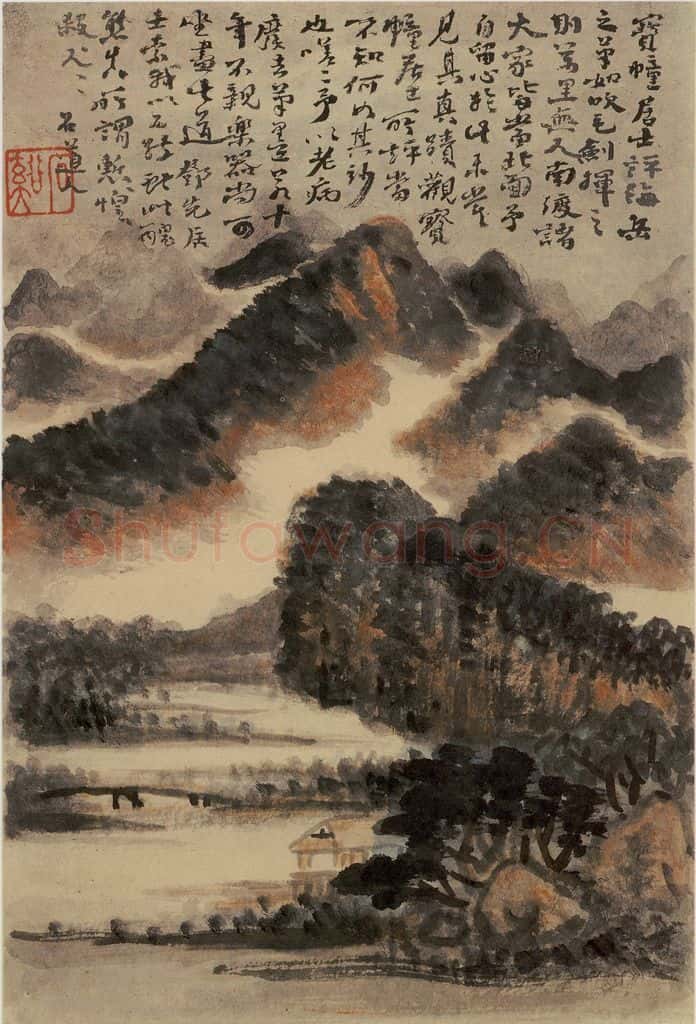 寶幢居士評海岳
之筆如吹毛劍揮之
則萬里無人南渡諸
大家皆當北面予
自留心於此未嘗
見其真蹟觀寶
幢居士所評當
不知何如其妙
也嗟〻予以老病
廢去筆墨近十
年不親樂器尚可
坐盡道先居
士索我以此醜
態先所謂慙惶
殺人〻 石道人
Shufawang.CN